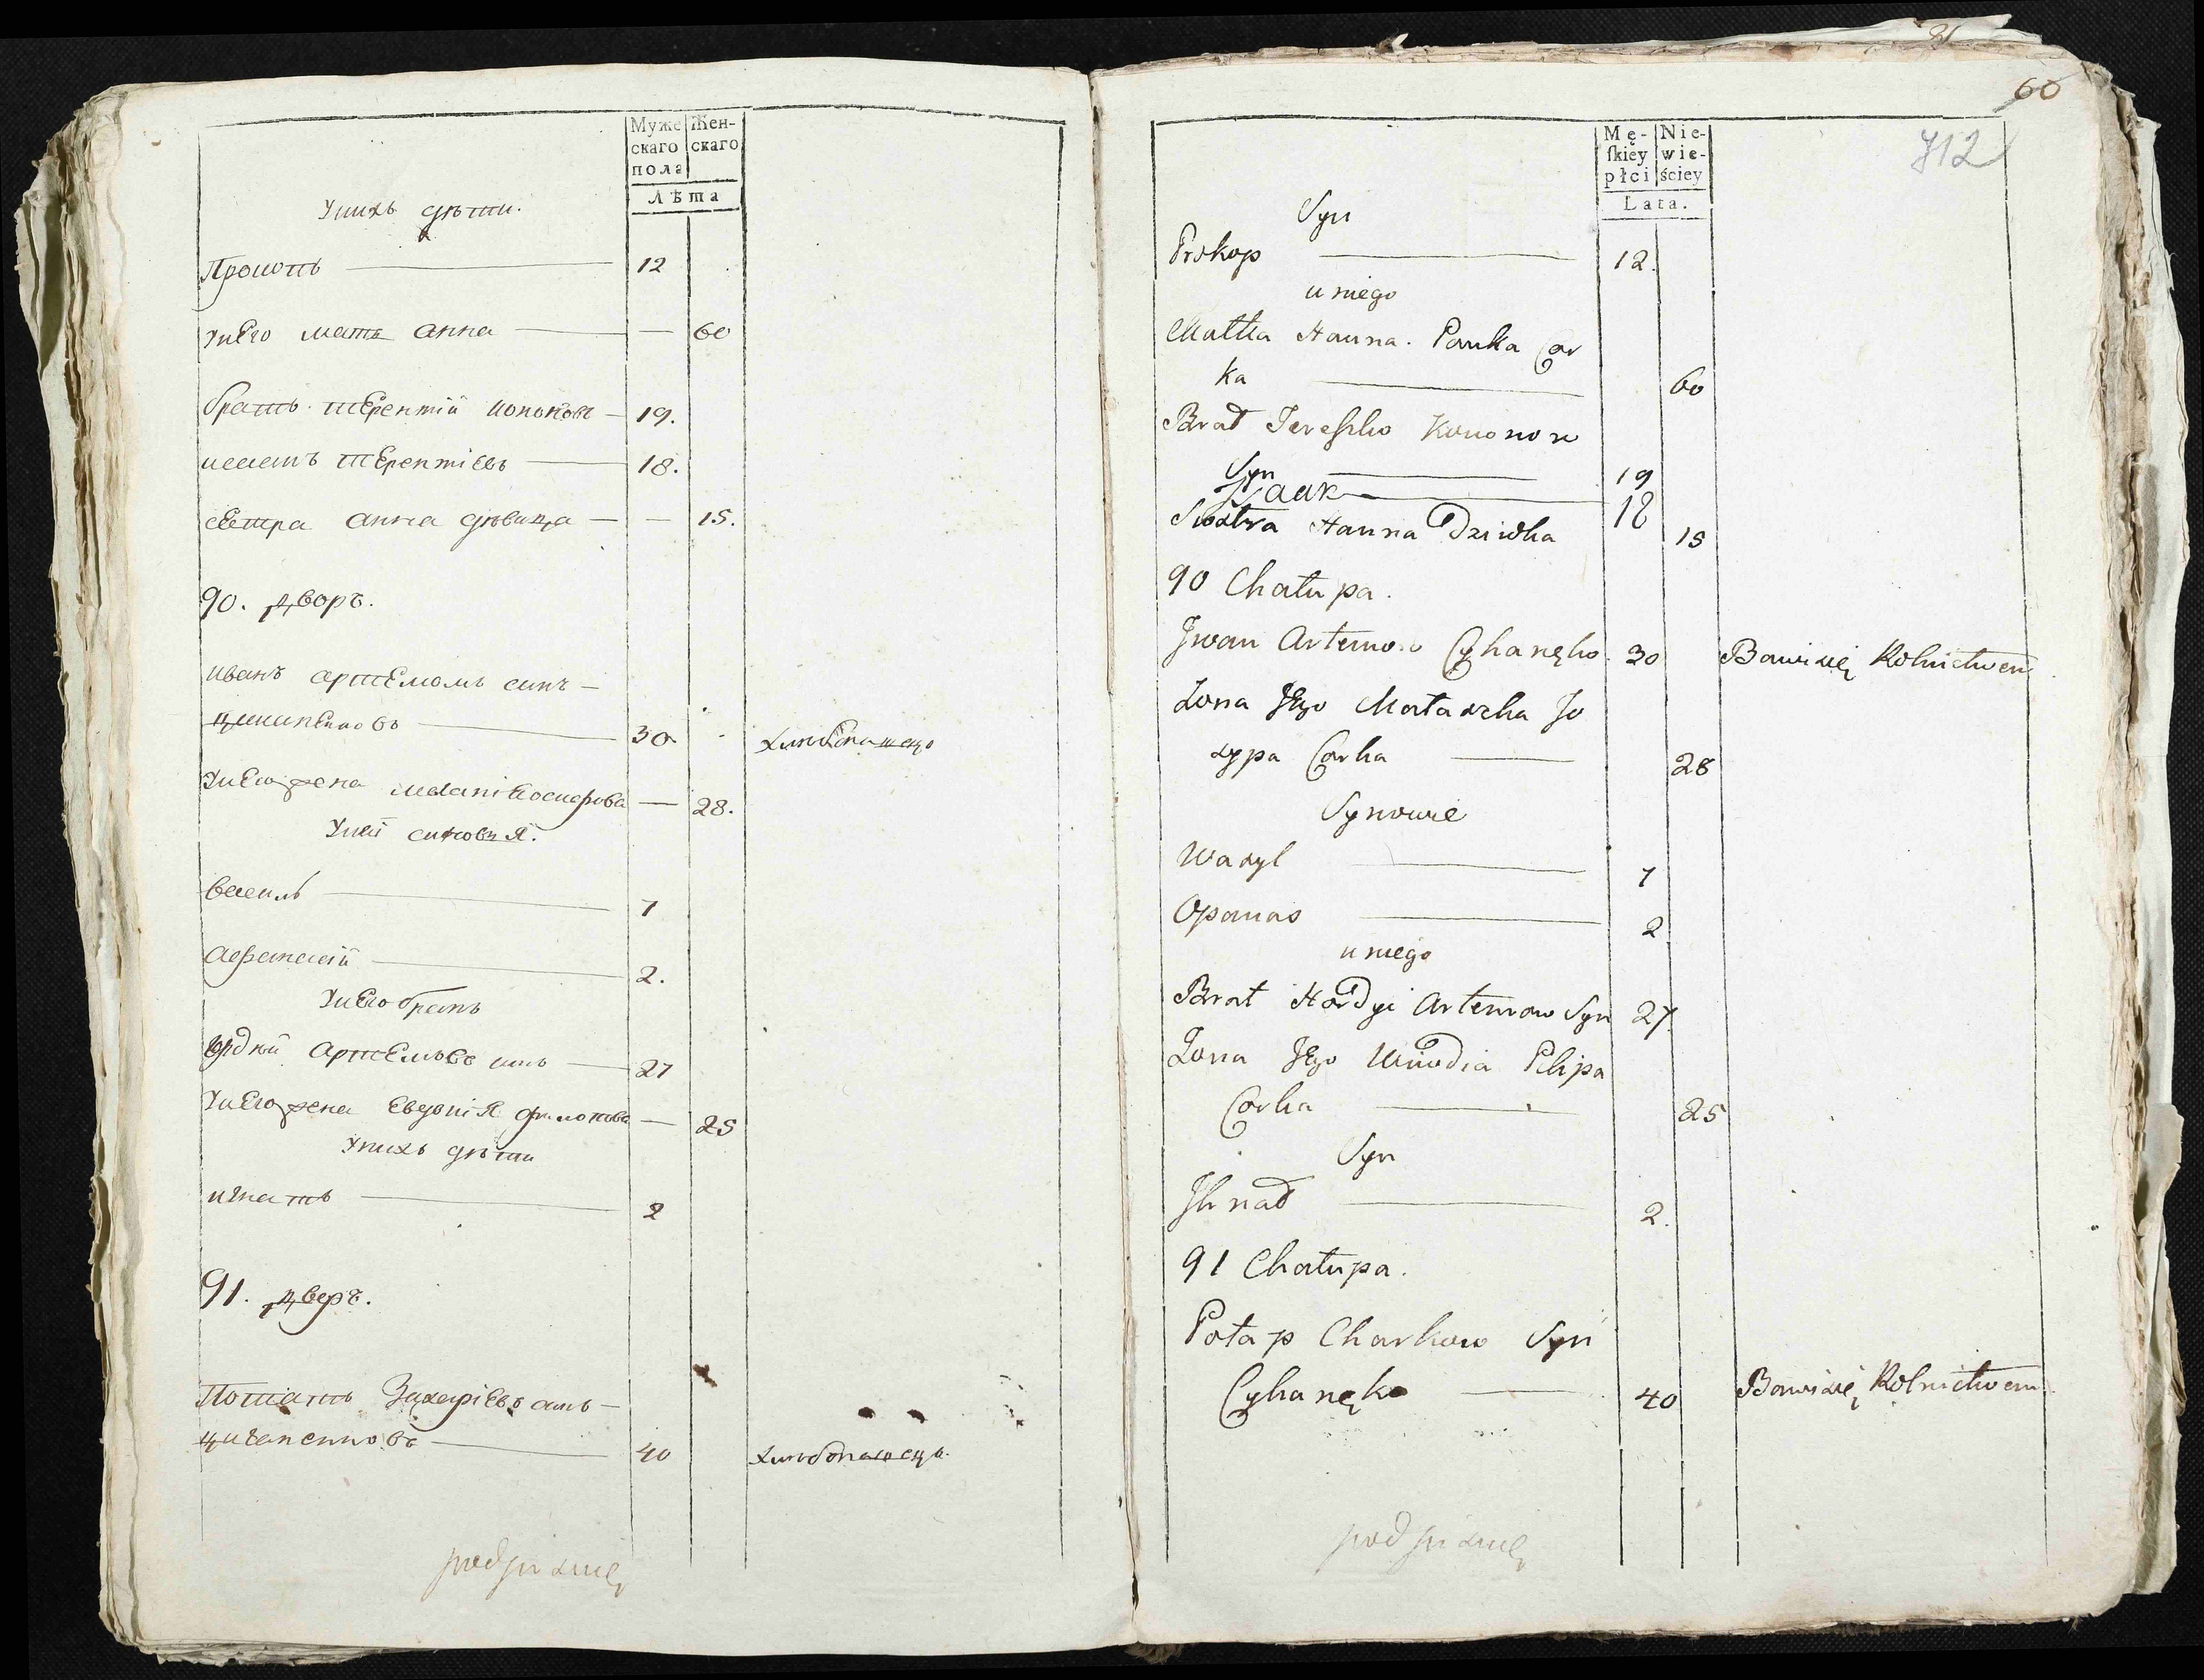 Муже
скаго
пола
Жен-
скаго
Лѣта
Унихъ дѣти.
Прокопъ — 12
Унего мать анна — — 60
братъ терентій кононовъ — 19.
исакъ терентіевъ — 18.
сестра анна дѣвица — — 15.
90. дворъ.
иванъ артемовъ синъ —
циганенковъ — 30 хлебопашецъ
Унего жена меланія осипова — 28.
Уней синовья.
василь — 1
афанасій — 2.
Унего братъ
гордей артемовъ синъ — 27
Унего жена Евдокія филипова — 25
Унихъ дѣти
игнатъ — 2
91. дворъ.
Потапъ Захаріевъ синъ —
циганенковъ — 40 хлебопашецъ.
podpisuię
60
712
Mę-
ſkiéy
płci
Nie-
wie-
ściey
Lata.
Syn
Prokop — 12.
u niego
Matka Hanna. Pauka Cor
ka — 60
Brat Tereszko Kononow
Syn — 19
Izaak — 18
Siostra Hanna Dziwka 15
90 Chałupa.
Jwan Artemow Cyhanęko. 30 Bawi się Rolnictwem
Zona Jego Małaszka Jo
zypa Corka — 28
Synowie
Wasyl — 1
Opanas — 2
u niego
Brat Hordyi Artemow Syn 27.
Zona Jego Wiwdia Pilipa
Corka — 25
Syn
Jhnat — 2.
91 Chałupa.
Potap Charkow Syn
Cyhanęko — 40 Bawi się Rolnictwem.
podpisuię